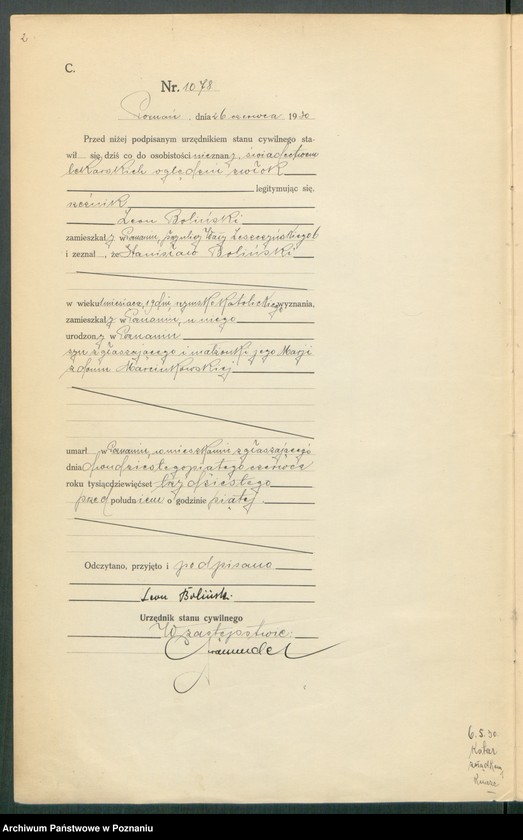 2
C.
Nr. 1078
Poznań, dnia 26 czerwca 1930
Przed niżej podpisanym urzędnikiem stanu cywilnego sta-
wił się, dziś co do osobistości nieznany, świadectwem
lekarskich oględzin zwłok
legitymując się,
Leon Boliński
zamieszkały w Poznaniu, przy ulicy Wały Leszczyńskiego 6
i zeznał, że Stanisław Boliński
w wieku 1 miesiąc, 19 dni rzymsko katolickiego wyznania,
zamieszkały w Poznaniu, u niego
urodzony w Poznaniu
syn zgłaszającego i małżonki jego Marji
z domu Marcinkowskiej
umarł w Poznaniu, w mieszkaniu zgłaszającego
dnia dwudziestegopiątego czerwca
roku tysiącdziewięćset trzydziestego
przed południem o godzinie piątej.
Odczytano, przyjęto i podpisano
Leon Boliński.
Urzędnik stanu cywilnego
W zastępstwie:
6.5.30
Archiwum Państwowe w Poznaniu